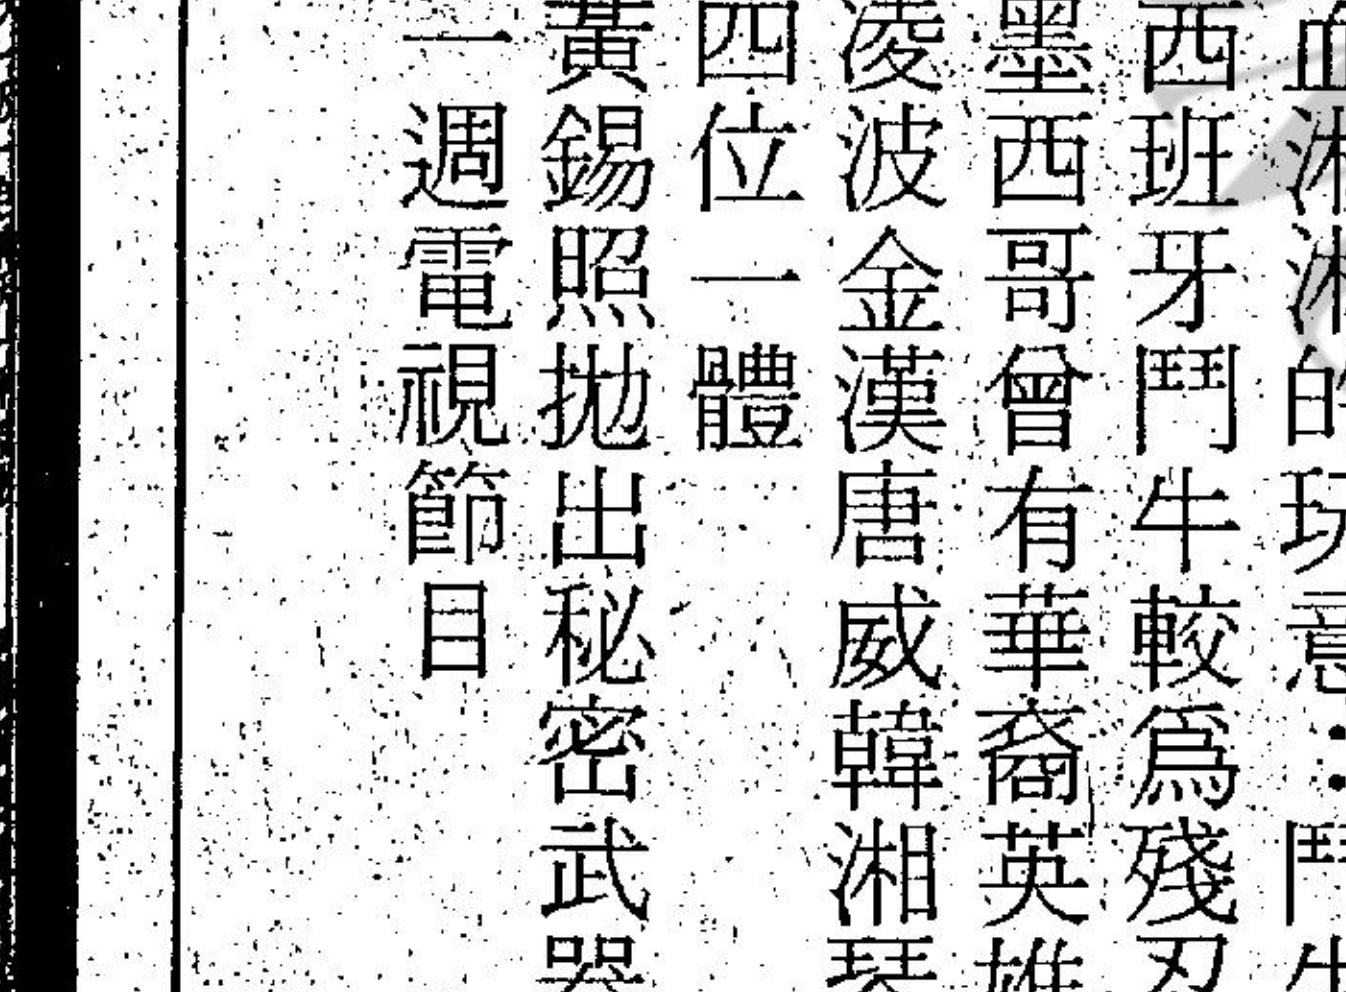 血淋淋的玩意：鬥牛
西班牙鬥牛較爲殘忍
墨西哥曾有華裔英雄
凌波金漢唐威韓湘琴
四位一體
黃錫照拋出秘密武器
一週電視節目